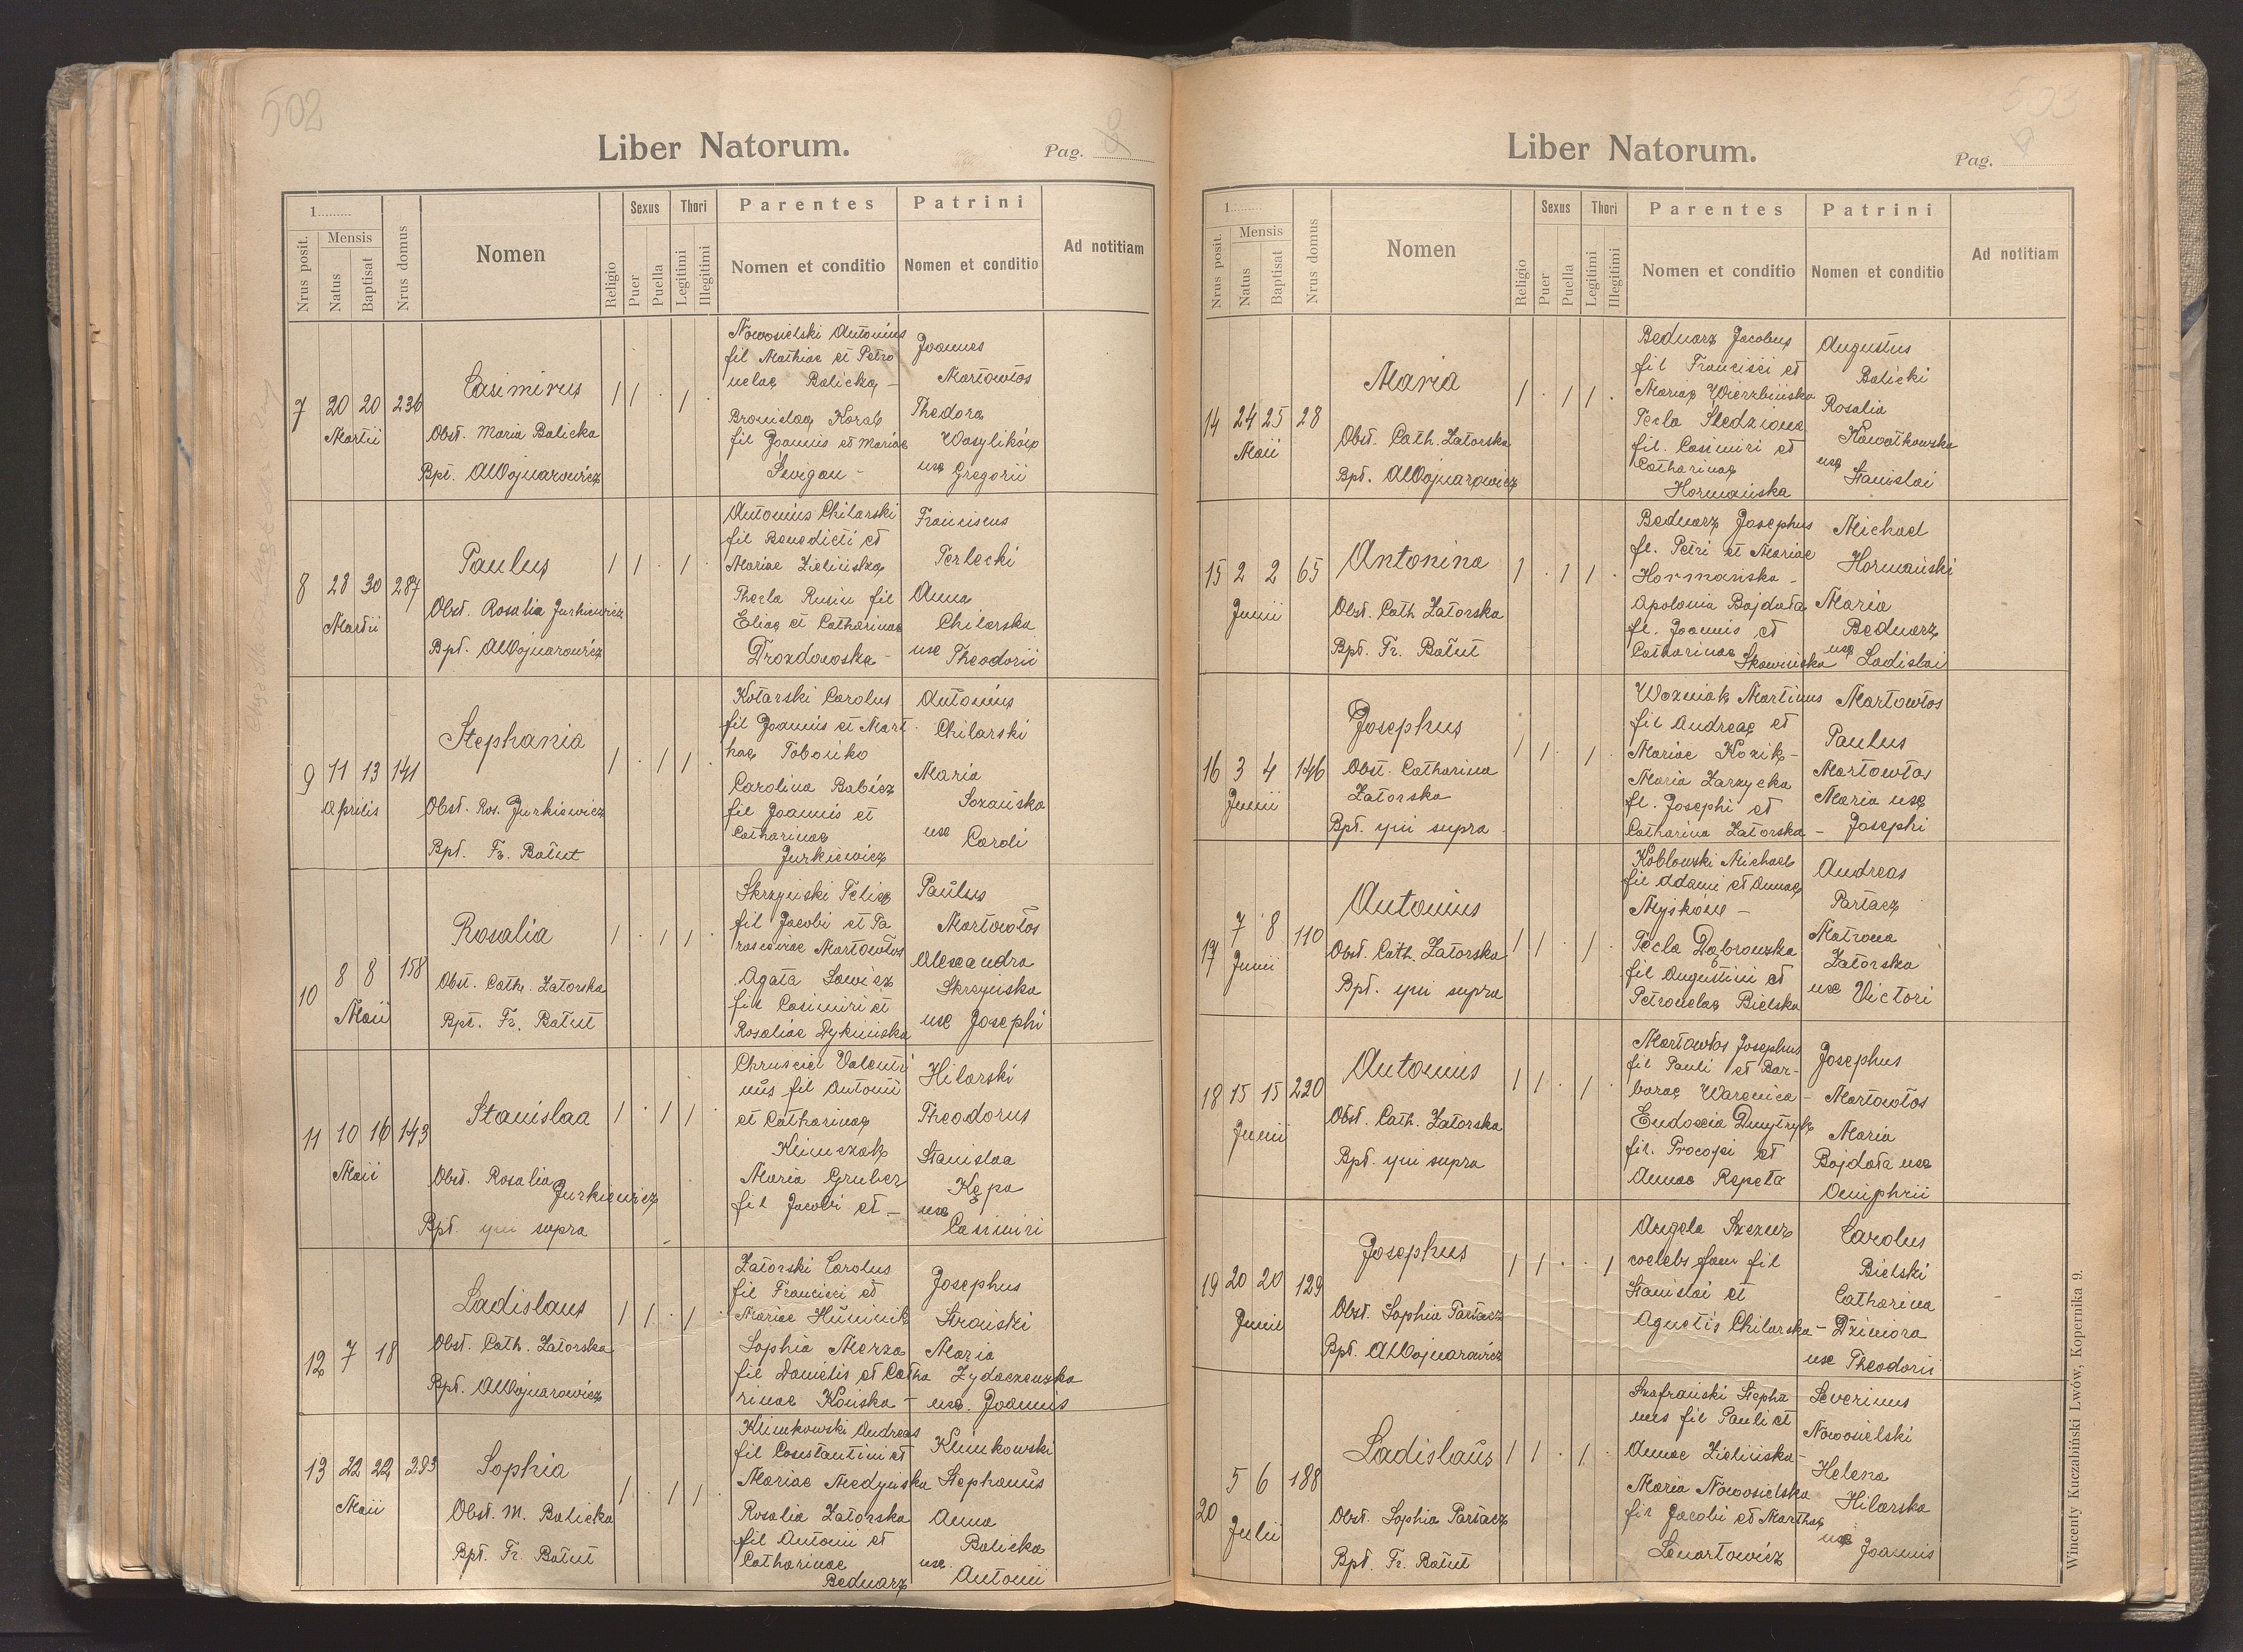 502
Liber Natorum.
Pag.
1
Mensis
Sexus
Thori
Parentes
Patrini
Nrus posit.
Natus
Baptisat
Nrus domus
Nomen
Religio
Puer
Puella
Legitimi
Illegitimi
Nomen et conditio
Nomen et conditio
Ad notitiam
7 20 20 236
Martii
Casimirus
Obst. Maria Balicka
Bpt. AWojnarowicz
1 1 . 1 .
Nowosielski Antonius
fil Mathiae et Petro
nelae Balicka -
Bronislaa Koral
fil Joannis et Mariae
Śzwigan -
Joannes
Martowłos
Thedora
Wasylików
uxe Gregorii
8 28 30 287
Martii
Paulus
Obst. Rosalia Jurkiewicz
Bpt. AWojnarowicz
1 1 . 1 .
Antonius Chilarski
fil Benedicti et
Mariae Zielińska
Thecla Rusin fil
Eliae et Catharinae
Drozdowska -
Franciscus
Terlecki
Anna
Chilarska
uxe Theodorii
9 11 13 141
Aprilis
Stephania
Obst. Ros. Jurkiewicz
Bpt. Fr. Bałut
1 . 1 1 .
Kotarski Carolus
fil Joannis et Mart
hae Tobońko
Carolina Babicz
fil Joannis et
Catharinae
Jurkiewicz
Antonius
Chilarski
Maria
Sozańska
uxe Caroli
10 8 8 158
Maii
Rosalia
Obst. Cath. Zatorska
Bpt. Fr. Bałut
1 . 1 1 .
Skrzyński Felix
fil Jacobi et Pa
rascevae Martowłos
Agata Sawicz
fil Casimiri et
Rosaliae Dykuińska
Paulus
Martowłos
Alexandra
Skrzyńska
uxe Josephi
11 10 16 143
Maii
Stanislaa
Obst. Rosalia
Jurkiewicz
Bpt. qui supra
1 . 1 1 .
Chruściel Valenti
nus fil Antonii
et Catharinae
Klimczak
Maria Gruber
fil Jacobi et -
Hilarski
Theodorus
Stanislaa
Kępa
uxe
Casimiri
12 7 18
Ladislaus
Obst. Cath. Zatorska
Bpt. AWojnarowicz
1 1 . 1 .
Zatorski Carolus
fil Francisci et
Mariae Huminik
Sophia Merza
fil Danielis et Catha
rinae Końska -
Josephus
Stroński
Maria
Zydaczewska
uxe. Joannis
13 22 22 283
Maii
Sophia
Obst. M. Balicka
Bpt. Fr. Bałut
1 . 1 1 .
Klimkowski Andreas
fil Constantini et
Mariae Medyńska
Rosalia Zatorska
fil Antonii et
Catharinae
Bednarz
Klimkowski
Stephanus
Anna
Balicka
uxe.
Antonii
503
Liber Natorum.
Pag.
1
Mensis
Sexus
Thori
Parentes
Patrini
Nrus posit.
Natus
Baptisat
Nrus domus
Nomen
Religio
Puer
Puella
Legitimi
Illegitimi
Nomen et conditio
Nomen et conditio
Ad notitiam
14 24 25 28
Maii
Maria
Obst. Cath. Zatorska
Bpt. AWojnarowicz
1 . 1 1 .
Bednarz Jacobus
fil Francisci et
Mariae Wierzbińska
Tecla Śledziona
fil. Casimiri et
Catharinae
Hormańska
Augustus
Balicki
Rosalia
Kawałkowska
uxe
Stanislai
15 2 2 65
Junii
Antonina
Obst. Cath Zatorska
Bpt. Fr. Bałut
1 . 1 1 .
Bednarz Josephus
fl. Petri et Mariae
Hormańska -
Apolonia Bojdała
fl. Joannis et
Catharinae Skowińska
Michael
Hormański
Maria
Bednarz
uxe Ladislai
16 3 4 146
Junii
Josephus
Obst. Catharina
Zatorska
Bpt. qui supra
1 1 . 1 .
Wozniak Martinus
fil Andreae et
Mariae Kozik -
Maria Zarzycka
fl. Josephi et
Catharina Zatorska -
Martowłos
Paulus
Martowłos
Maria uxe
Josephi
17 7 8 110
Junii
Antonius
Obst. Cath. Zatorska
Bpt. qui supra
1 1 . 1 .
Kobłowski Michael
fil Adami et Annae
Myśków -
Tecla Dąbrowska
fil Augustini et
Petronelae Bielska
Andreas
Partacz
Matrona
Zatorska
uxe Victori
18 15 15 220
Junii
Antonius
Obst. Cath. Zatorska
Bpt. qui supra
1 1 . 1 .
Martowłos Josephus
fil Pauli et Bar-
barae Warenica -
Eudoxia Dmytryk
fil. Procopi et
Annae Repeta
Josephus
Martowłos
Maria
Bojdała uxe
Onuphrii
19 20 20 129
Junii
Josephus
Obst. Sophia Partacz
Bpt. AWojnarowicz
1 1 . . 1
Angela Szczur
coelebs fam fil
Stanislai et
Agnetis Chilarska -
Carolus
Bielski
Catharina
Dziwiora
uxe Theodoris
20 5 6 188
Julii
Ladislaus
Obst. Sophia Partacz
Bpt Fr. Bałut
1 1 . 1 .
Szafrański Stepha
nus fil Pauli et
Annae Zielińska -
Maria Nowosielska
fil Jacobi et Marthae
Lenartowicz
Severinus
Nowosielski
Helena
Hilarska
uxe Joannis
Wincenty Kuczabiński Lwów, Kopernika 9.